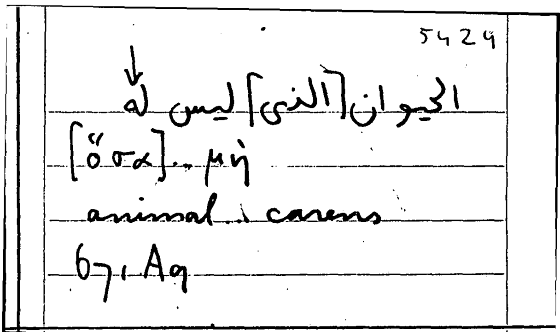 5424
الحيوان [الذى] ليس له
[ὅσα].. μή
animal .. carens
67, A9